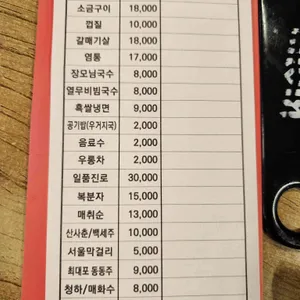 소금구이 18,000
껍질 10,000
갈매기살 18,000
염통 17,000
장모님국수 8,000
열무비빔국수 8,000
흑쌀냉면 9,000
공기밥(우거지국) 2,000
음료수 2,000
우롱차 2,000
일품진로 30,000
복분자 15,000
매취순 13,000
산사춘/백세주 10,000
서울막걸리 5,000
최대포 동동주 9,000
청하/매화수 8,000